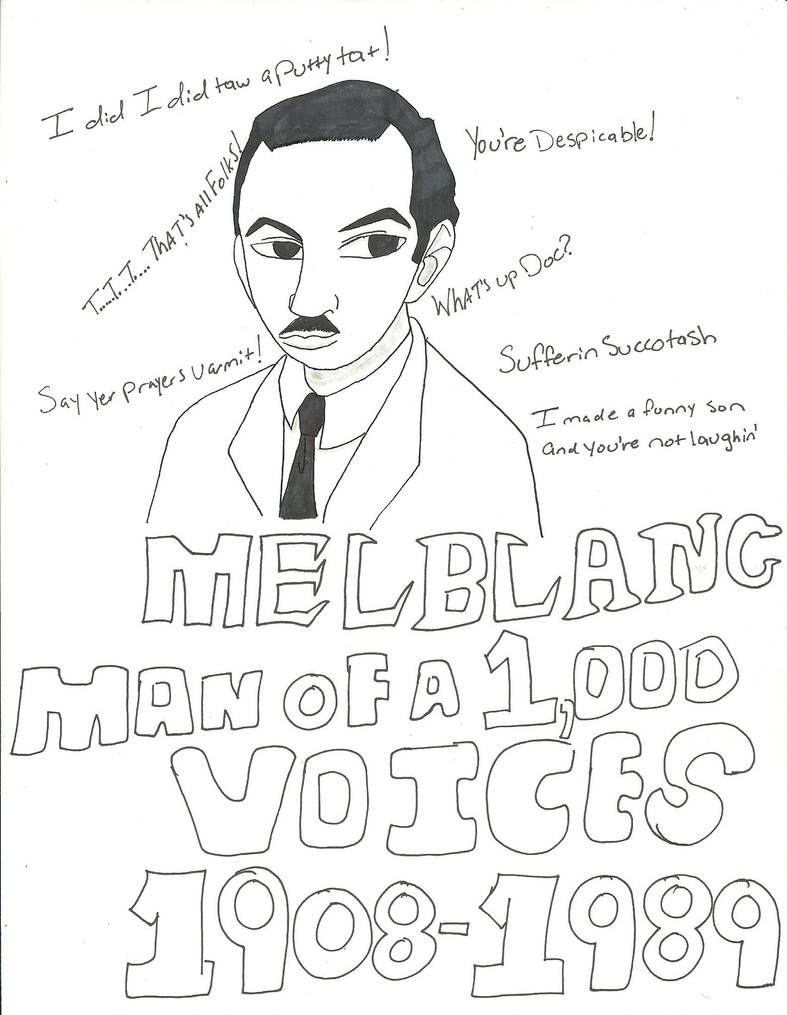 I did I did taw a putty tat!
You're Despicable!
T....T..T.... That's all Folks!
What's up Doc?
Say yer prayers varmit!
Sufferin Succotash
I made a funny son
and you're not laughin'
MEL BLANC
MAN OF A 1,000
VOICES
1908-1989